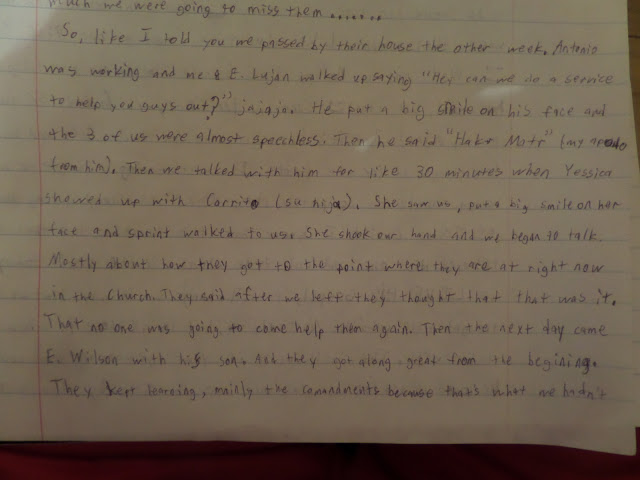 much we were going to miss them.......
So, like I told you we passed by their house the other week. Antonio
was working and me & E. Lujan walked up saying "Hey can we do a service
to help you guys out?" jajaja. He put a big smile on his face and
the 3 of us were almost speechless. Then he said "Hako Motr" (my
from him). Then we talked with him for like 30 minutes when Yessica
showed up with Carrito (su hija). She saw us, put a big smile on her
face and sprint walked to us. She shook our hand and we began to talk.
Mostly about how they got to the point where they are at right now
in the Church. They said after we left they thought that that was it.
That no one was going to come help them again. Then the next day came
E. Wilson with his son. And they got along great from the begining.
They kept learning, mainly the comandments because that's what we hadn't